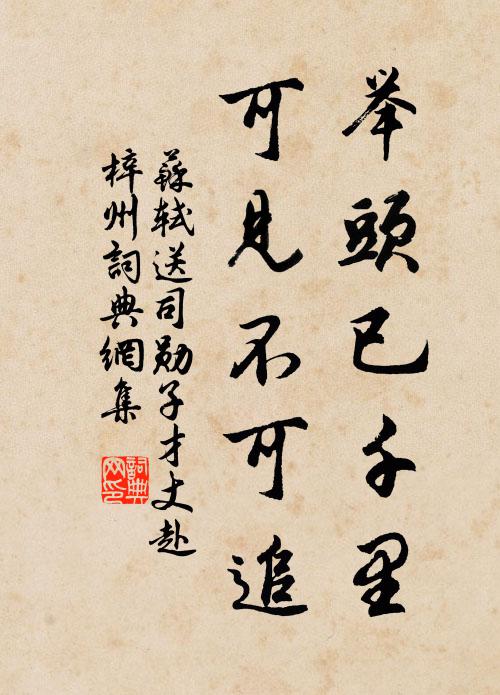 举頭已千里
可見不可追
蘇軾送司勛子才丈赴
梓州詞典網集
詞典
网印